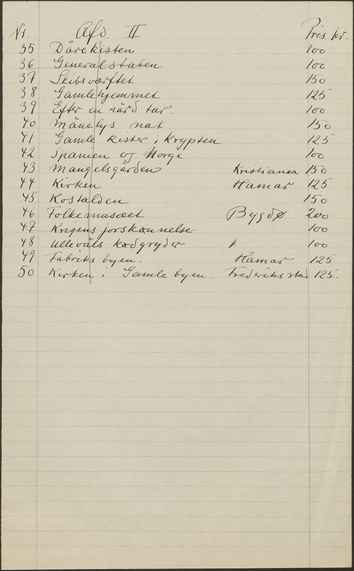 Nr. Afd. II Pris kr.
35 Dårekisten 100
36 Generalstaben 100
37 Skibsværftet 150
38 Gamlehjemmet 125
39 Eftr en hård tur. 100
40 Månelys nat 150
41 Gamle kister i krypten 125
42 Spanien og Norge 100
43 Mangelsgården Kristiania 150
44 Kirken Hamar 125
45 Kostalden 150
46 Folkemuseet Bygdø 200
47 Krigens forskannelse 100
48 Ullevåls kodgryder 100
49 Fabriks byen. Hamar 125
50 Kirken i Gamle byen. Frederiksstad 125.